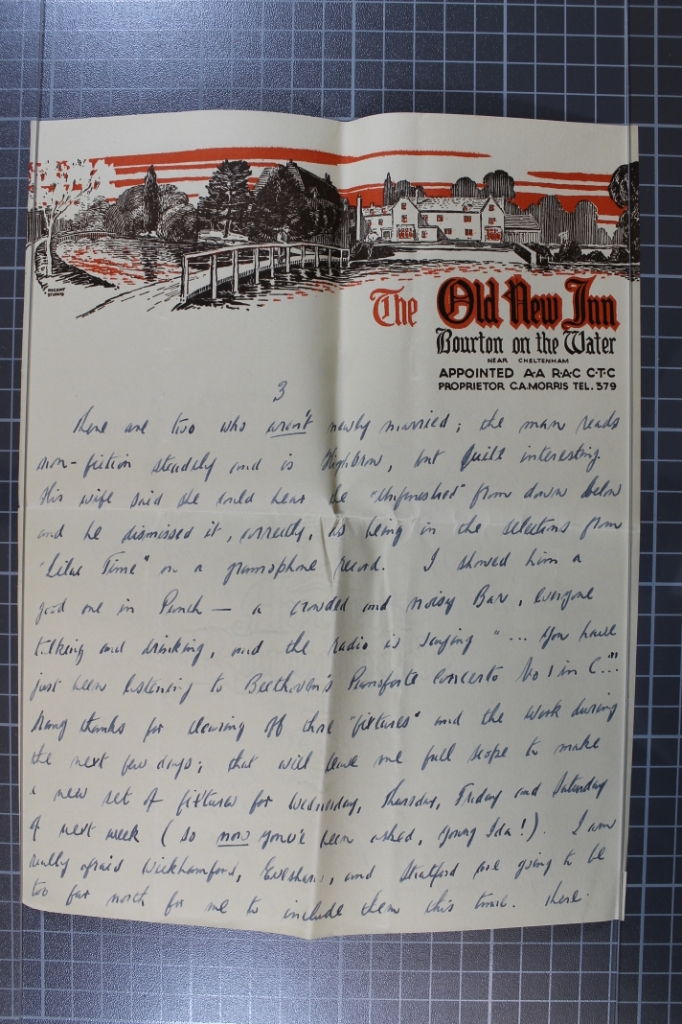 The Old New Inn
Bourton on the Water
NEAR CHELTENHAM
APPOINTED A·A R·A·C C·T·C
PROPRIETOR C.A. MORRIS TEL. 379
3
There are two who aren't newly married; the man reads
non-fiction steadily and is Highbrow, but quite interesting.
His wife said she could hear the "Unfinished" from down below
and he dismissed it, correctly, as being in the selections from
"Lilac Time" on a gramophone record. I showed him a
good one in Punch — a crowded and noisy Bar, everyone
talking and drinking, and the radio is saying "... you have
just been listening to Beethoven's Pianoforte Concerto No 1 in C..."
Many thanks for clearing off those "fixtures" and the work during
the next few days; that will leave me full scope to make
a new set of fixtures for Wednesday, Thursday, Friday and Saturday
of next week (so now you've been asked, young Ida!). I am
really afraid Wickhamford, Evesham, and Stratford are going to be
too far north for me to include them this time. There